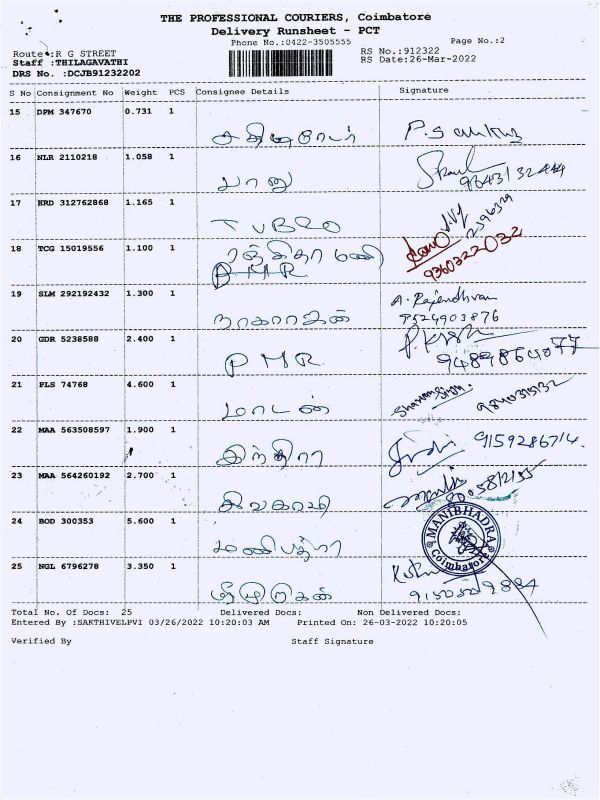 THE PROFESSIONAL COURIERS, Coimbatore
Delivery Runsheet - PCT
Phone No.:0422-3505555
Page No.:2
Route :R G STREET
RS No.:912322
Staff :THILAGAVATHI
RS Date:26-Mar-2022
DRS No. :DCJB91232202
S No Consignment No Weight PCS Consignee Details Signature
15 DPM 347670 0.731 1
16 NLR 2110218 1.058 1 பானு
17 HRD 312762868 1.165 1 TVBRO
18 TCG 15019556 1.100 1 ரஞ்சிதா மணி
9360322032
19 SLM 292192432 1.300 1 நாகராஜன் A. Rajendhran
9524903876
20 GDR 5238588 2.400 1 PMR
21 PLS 74768 4.600 1 மாடன்
22 MAA 563508597 1.900 1 இந்திரா 9159286714
23 MAA 564260192 2.700 1 சிவகாமி
24 BOD 300353 5.600 1 மணிபத்ரா MANIBHADRA
Coimbatore
25 NGL 6796278 3.350 1
Total No. Of Docs: 25 Delivered Docs: Non Delivered Docs:
Entered By :SAKTHIVELPVI 03/26/2022 10:20:03 AM Printed On: 26-03-2022 10:20:05
Verified By Staff Signature